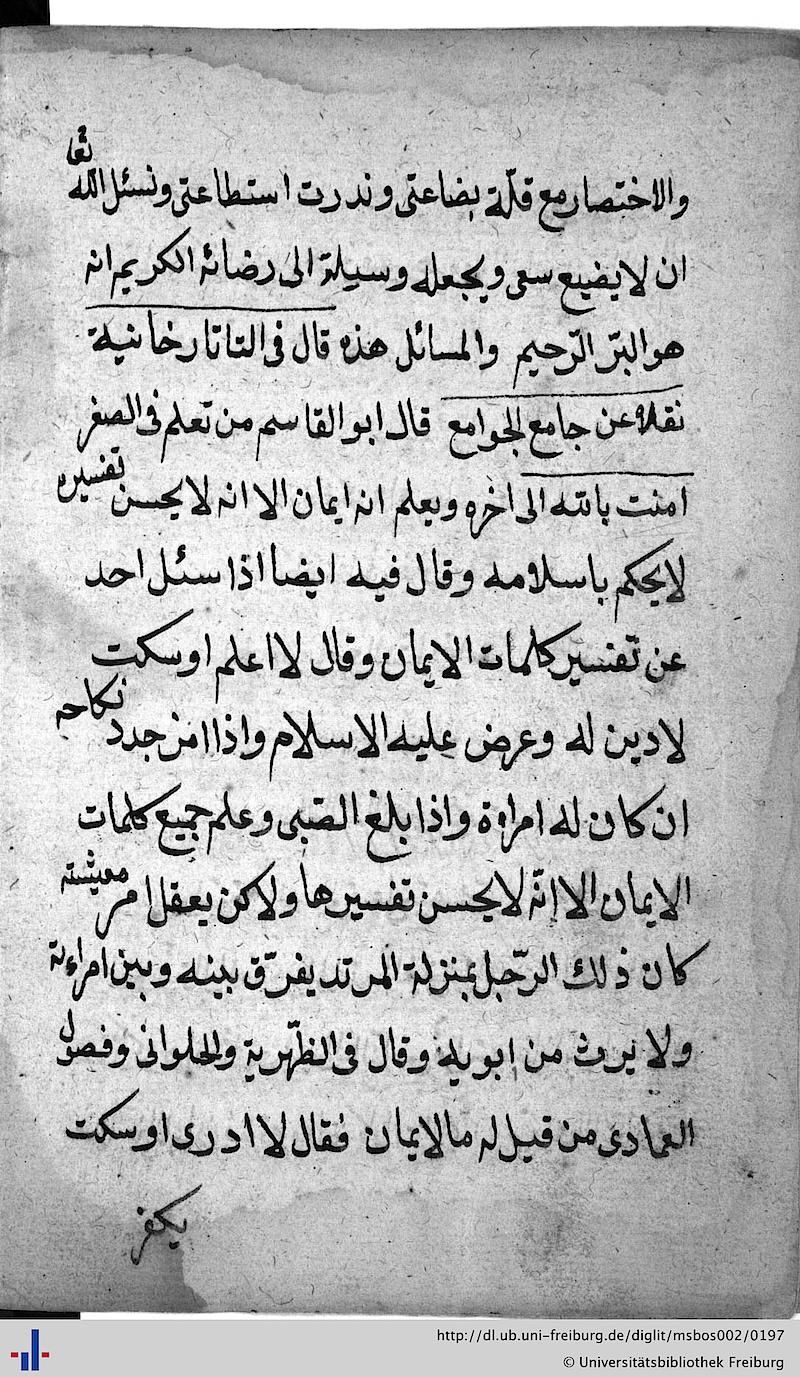 والاختصار مع قلّة بضاعتى وندرت استطاعتى ونسئل الله تعا
ان لا يضيع سعى ويجعله وسيلة الى رضائه الكريم انه
هو البرّ الرّحيم والمسائل هذه قال فى التاتارخانية
نقلاه عن جامع الجوامع قال ابو القاسم من تعلم فى الصغر
امنت بالله الى اخره ويعلم انه ايمان الا انه لا يحسن تفسيره
لا يحكم باسلامه وقال فيه ايضا اذا سئل احد
عن تفسير كلمات الايمان وقال لا اعلم او سكت
لا دين له وعرض عليه الاسلام واذا امن جدد نكاحه
ان كان له امراءة واذا بلغ الصّبى وعلم جميع كلمات
الايمان الا انّه لا يحسن تفسيرها ولاكن يعقل امر معيشته
كان ذلك الرّجل بمنزلة المرتد يفرّق بينه وبين امراءته
ولا يرث من ابويه وقال فى الظّهرية والحلوانى وفصول
العمادى من قيل له ما الايمان فقال لا ادرى او سكت
يكفر
http://dl.ub.uni-freiburg.de/diglit/msbos002/0197
© Universitätsbibliothek Freiburg